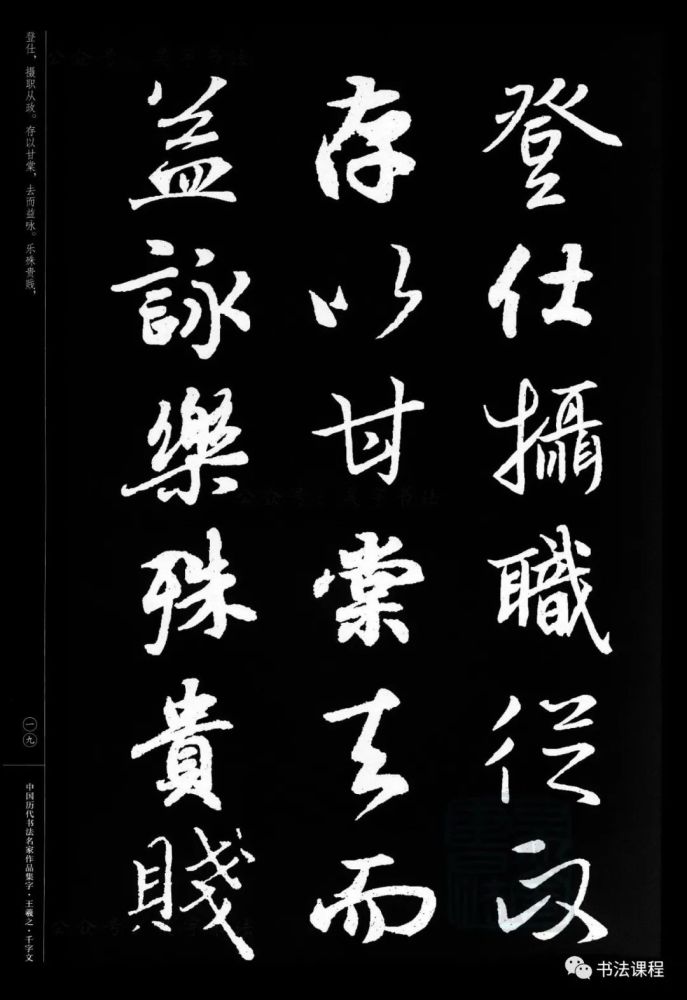 登仕攝職從政
存以甘棠去而
益詠樂殊貴賤
登仕，摄职从政。存以甘棠，去而益咏。乐殊贵贱，
一九
中国历代书法名家作品集字·王羲之·千字文
书法课程